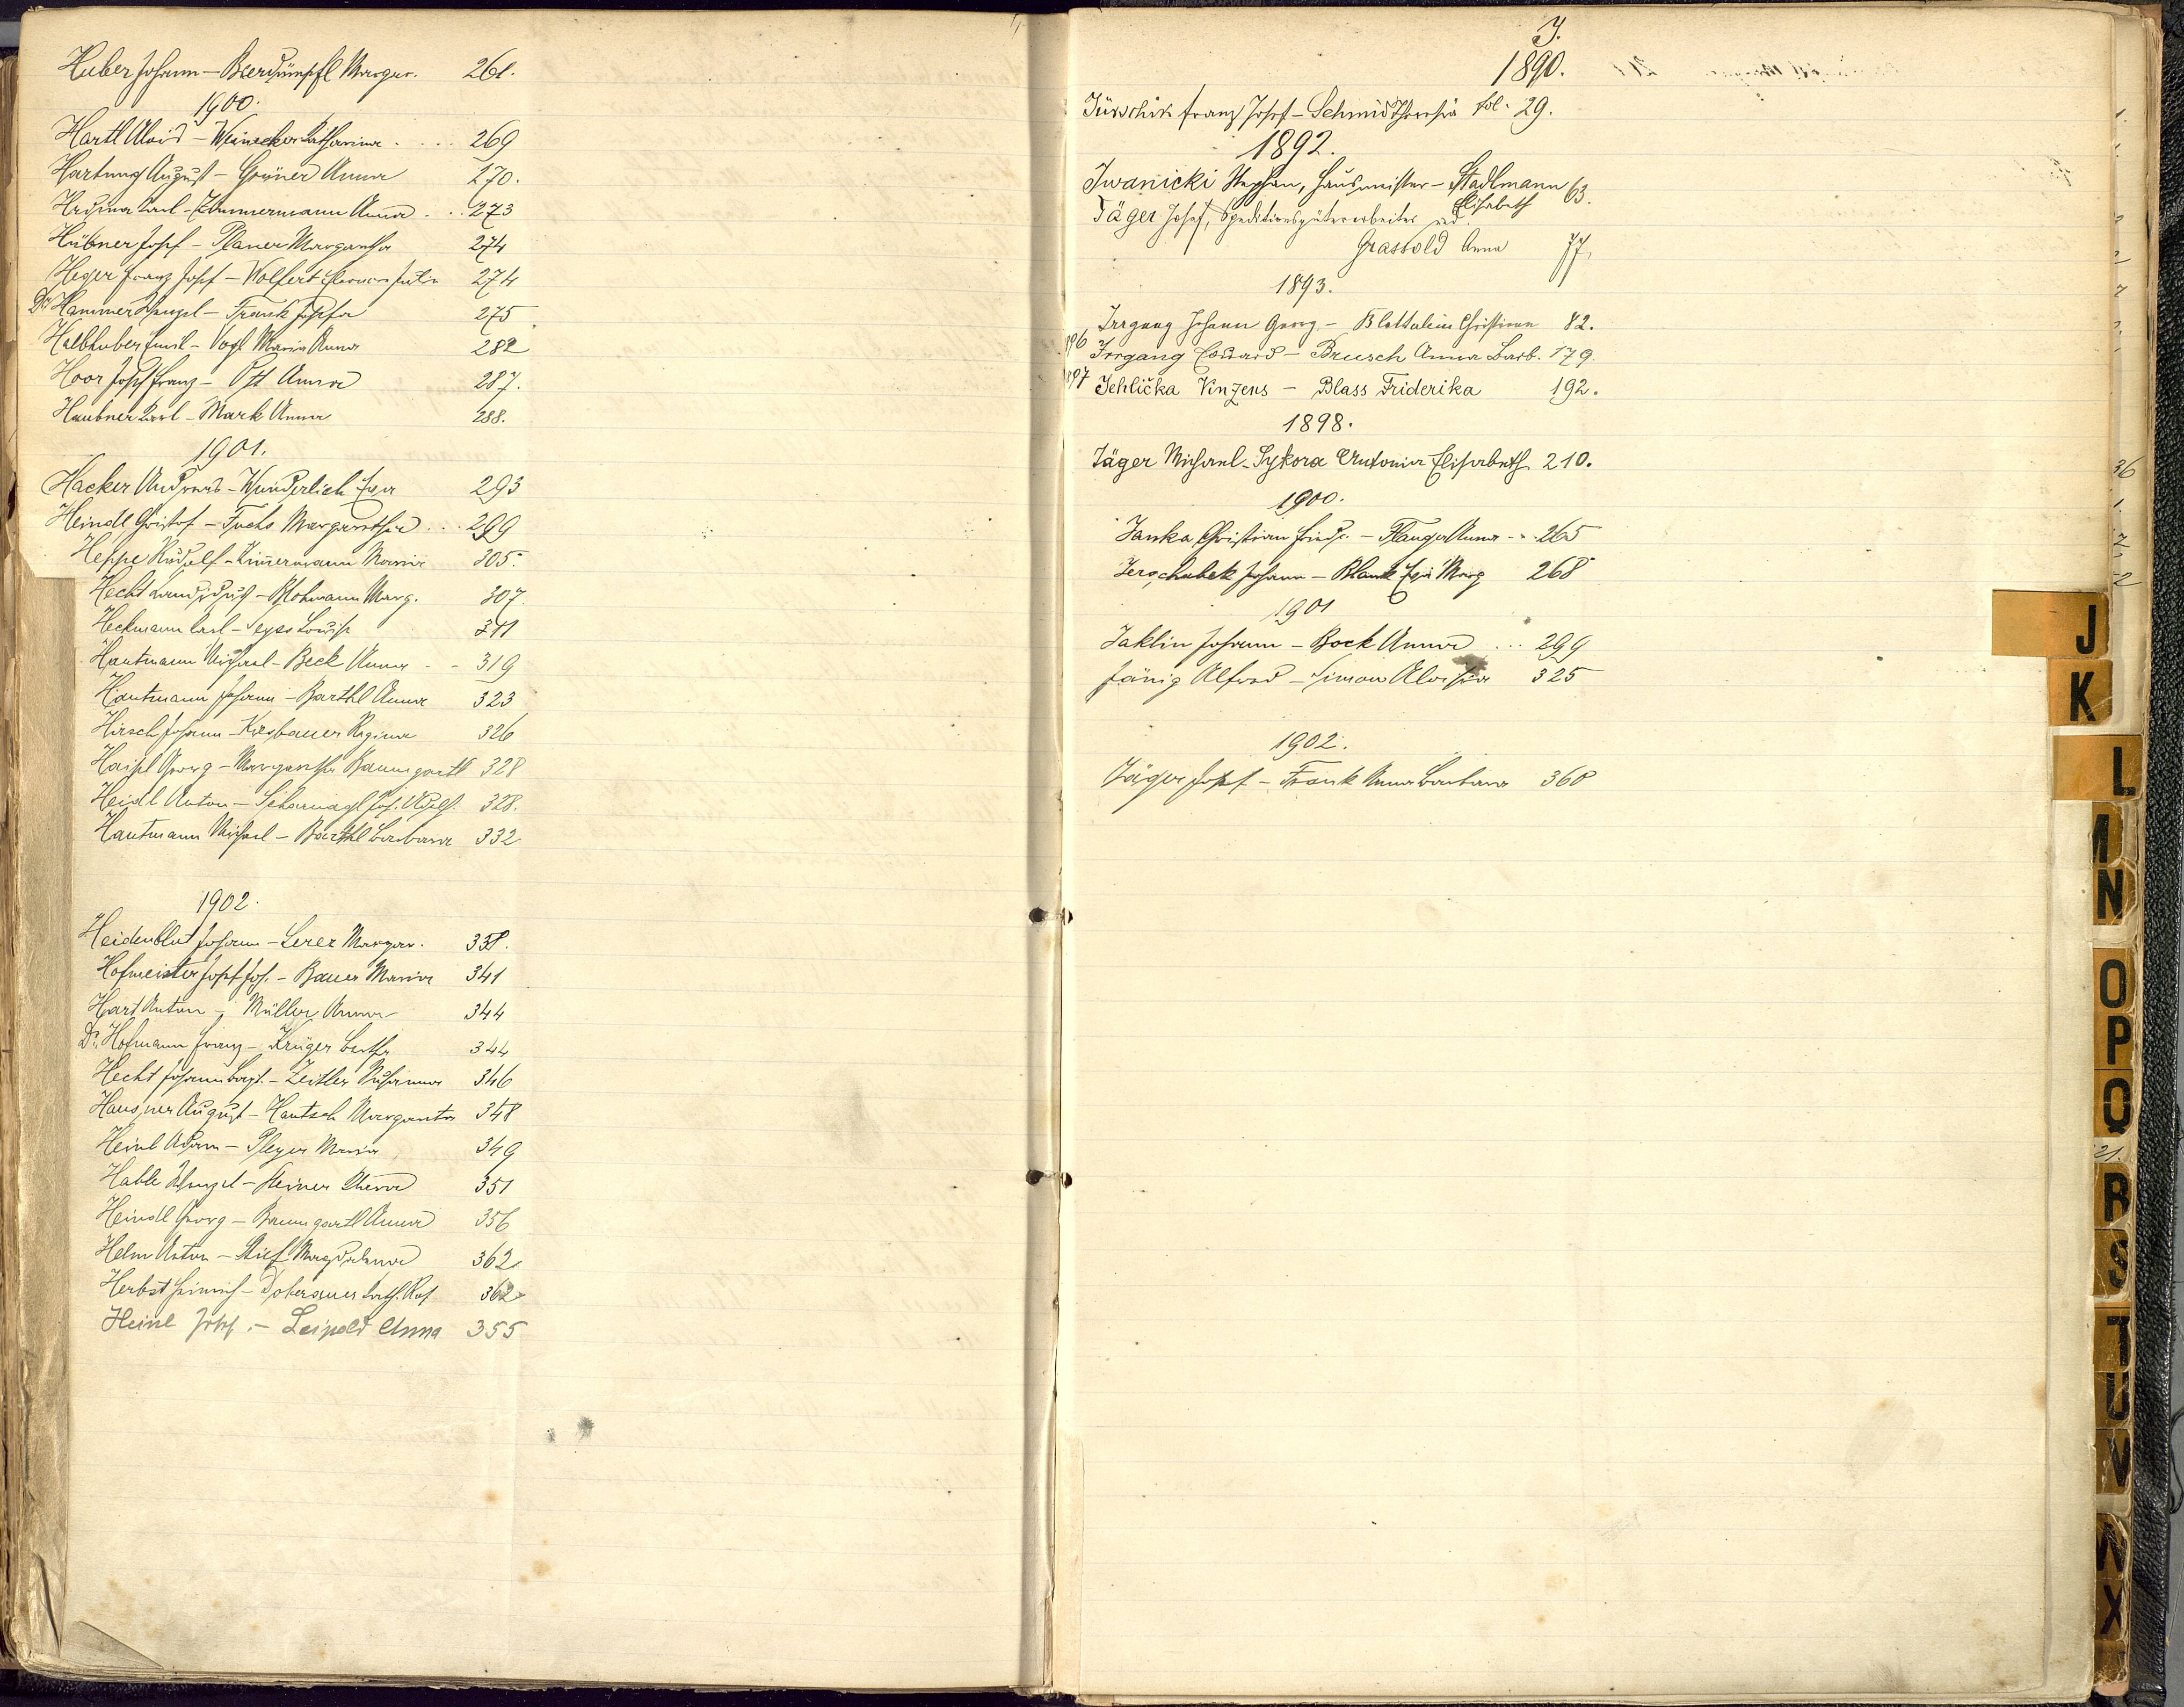 Huber Johann – Bierdümpfl Margar. 261.
1900.
Hartl Alois – Weinecker Katharina .... 269
Hartung August – Grüner Anna 270.
Hruska Karl – Zimmermann Anna .. 273
Hübner Josef – Planer Margaretha 274
Heger Franz Josef – Wolfert 274
Dr Hammer Wenzel – Frank Josefa 275
Halbhuber Emil – Vogl Maria Anna 282
Hoor Josef Franz – Ott Anna 287.
Haubner Karl – Mark Anna 288.
1901.
Hacker Andreas – Wunderlich Eva 293
Heindl Christof – Fuchs Margaretha ... 299
Heppe Rudolf – Zim̄ermann Maria 305.
Hecht – Plohmann Marg. 307.
Heckmann Carl – Louise 311
Hautmann Michael – Beck Anna - - 319
Hautmann Johann – Barthl Anna 323
Hirsch Johann – Kirsbauer Regina 326
Haisl Georg – Margaretha Baumgartl 328
Heidl Anton – Scharnagl Jos. Adelh. 328.
Hautmann Michael – Barthl Barbara 332
1902.
Heidenblut Johann – Lerez Margar. 338.
Hofmeister Josef Joh. – Bauer Maria 341
Hart Anton – Müller Anna 344
Dr. Hofmann Franz – Krüger Bertha 344
Hecht Johann Bapt. – Zeitler Susanna 346
Hausner August – Hautsch Margareta 348
Heinl Adam – Pleyer Maria 349
Hable Wenzel – Steiner 351
Heindl Georg – Baumgartl Anna 356
Helm Anton – Stief Magdalena 362.
Herbst Heinrich – Doberauer Kath. Ros. 362.
Heinl Josef – Leipold Anna 355
J.
1890.
Franz Josef – Schmid Theresia fol. 29.
1892.
Iwanicki Stephan, Hausmeister – Stadlmann 63.
Elisabeth
Jäger Josef, Speditionsgüterarbeiter und
Grassold Anna 77.
1893.
Irrgang Johann Georg – Christiana 82.
896 Irrgang Eduard – Brusch Anna Barb. 179.
1897 Jehlička Vinzens – Blass Friderika 192.
1898.
Jäger Michael – Sykora Antonia Elisabeth 210.
1900.
Janka Christian Friedr. – Plauger Anna - .. 265
Jerschabek Johann – Blank Eva Marg 268
1901
Jaklin Johann – Bock Anna ... 299
Jänig Alfred – Simon Aloisia 325
1902.
Jäger Josef – Frank Anna Barbara 360
36
J
K
L
N
O
P
Q
21.
R
S
T
U
V
W
X